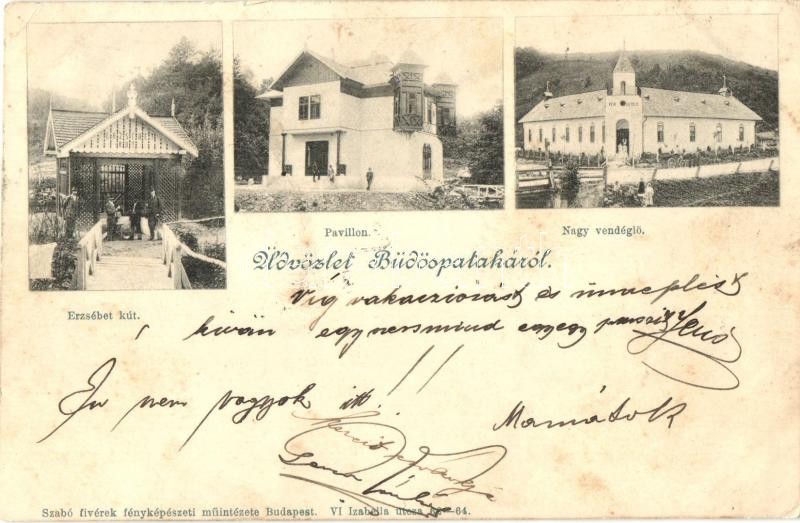 Pavillon.
Nagy vendéglő.
Erzsébet kút.
Üdvözlet Büdöspatakáról.
Víg vakácziózást és ünneplést
kíván egynersmind egyegy Jenő
Én nem vagyok itt!!
Mamátok
Szabó fivérek fényképészeti műintézete Budapest. VI Izabella utcza 64.